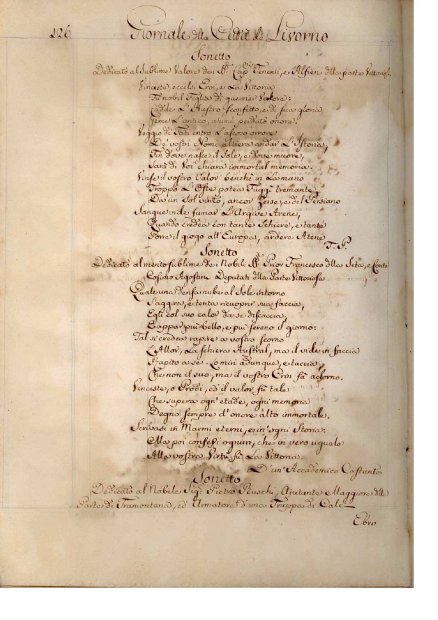 126 Giornale della Città di Livorno
Sonetto
Dedicato al sublime Valore dei SS.ri Cap.ni Tenenti, e Alfieri della parte Vittoriosa
Vinceste, eccelsi Eroi, e la Vittoria
Fù nobil Figlia di guerrier Valore:
Cedde l'Austro sconfitto, e di sua gloria
l'antico, e perduto onore.
Veggio di Fati entro l'ascoso orrore
De vostri Nomi altera andar l'Istoria,
Fin dove nasce il Sole, e dove muore,
Sarà di Voi chiara immortal memoria.
Vinse il vostro Valor: benchè in la mano
Troppo l'Oste potea Fuggì tremante
Da un sol vinto, ancor Serse, e del Persiano
Sangue vide fumar l'Argive Arene,
Quando credea con tante Schiere, e tante
Porre il giogo all'Europa, ardere Atene.
Sonetto
Dedicato al merito sublime dei Nobili SS.ri Prior Francesco della Seta, e Conte
Cosimo Agostini Deputati della Parte Vittoriosa
Quale una densa nube al Sole intorno
S'aggira, e tenta ricuoprir sua faccia,
Egli col suo calor da se discaccia,
E appar più bello, e più sereno il giorno:
Tal si credea rapire a vostro scorno
L'Allor, la schiera Austral, ma il vide in faccia
Rapito a se: Lomiri adunque, e taccia,
Che non il suo, ma il vostro Crin fù adorno.
Vinceste, o Prodi, ed il valor fù tale
Che supera ogn'etade, ogni memoria
Degno sempre d'onore alto immortale.
Scrivasi in Marmi eterni, e in ogni Storia;
Ma poi confessi ognun, che in vero uguale
Alla vostra Virtù fù la Vittoria.
D'un Accademico Costante
Sonetto
Dedicato al Nobile Sig.r Pietro Ruschi, Ajutante Maggiore della
Parte di Tramontana, ed Armatore d'una Truppa di Calci
Ebro